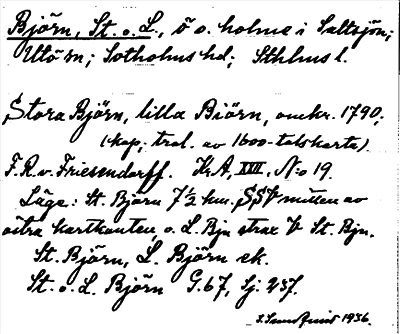 Björn, St. o. L., ö o. holme i Saltsjön;
Utö sn; Sotholms hd; Sthlms l.
Stora Björn, lilla Biörn, omkr. 1790,
(kop; trol. av 1600-talskarta).
F. R. v. Friesendorff. KrA, XVII, No 19.
Läge: St. Björn 7½ km. SSV mitten av
östra kartkanten, o. L. Bjn strax V St. Bjn.
St. Björn, L. Björn ek.
St. o. L. Björn G. 67, Sj 237.
1936.